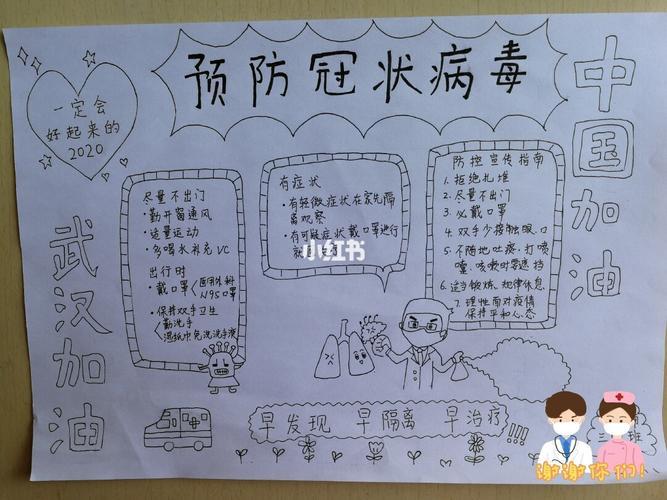 预防冠状病毒
一定会
好起来的
2020
中国加油
武汉加油
尽量不出门
·勤开窗通风
·适量运动
·多喝水补充VC
出行时
·戴口罩 医用外科
N95口罩
·保持双手卫生
勤洗手
湿纸巾免洗洗手液
有症状
·有轻微症状在家先隔
离观察
·有可疑症状戴口罩进行
就
小红书
防控宣传指南
1. 拒绝扎堆
2. 尽量不出门
3. 必戴口罩
4. 双手少接触眼、口
5. 不随地吐痰、打喷
嚏、咳嗽时要遮挡
6. 适当锻炼、规律休息
7. 理性面对疫情
保持平和心态
早发现 早隔离 早治疗!!!
三
班
谢谢你们!